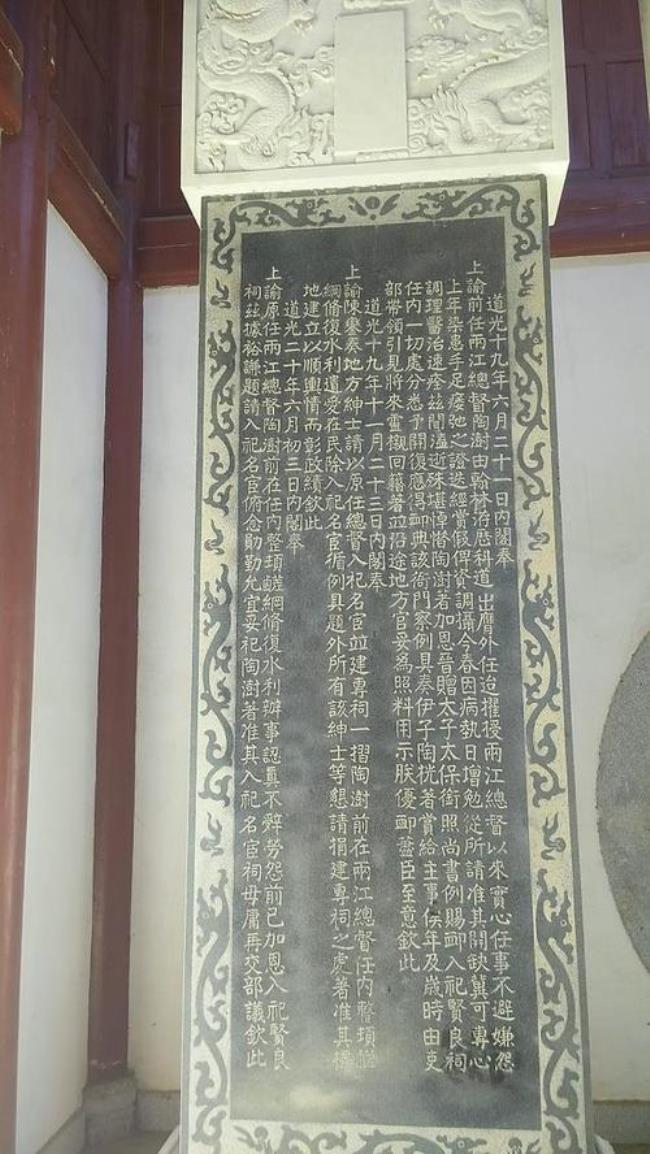 道光十九年六月二十一日内閣奉
上諭前任兩江總督陶澍由翰林洊歷科道出膺外任迨擢授兩江總督以來實心任事不避嫌怨
上年染患手足痿弛之證迭經賞假俾資調攝今春因病執日增勉從所請准其開缺冀可專心
調理醫治速痊茲聞溘逝殊堪悼惜陶澍著加恩晉贈太子太保銜照尚書例賜卹入祀賢良祠
任内一切處分悉予開復應得卹典該衙門察例具奏伊子陶桄著賞給主事俟年及歲時由吏
部帶領引見將來靈櫬回籍著並沿途地方官妥為照料用示朕優卹藎臣至意欽此
道光十九年十一月二十三日内閣奉
上諭陳奏地方紳士請以原任總督入祀名宦並建專祠一摺陶澍前在兩江總督任内整頓鹺
綱修復水利遺愛在民除入祀名宦循例具題外所有該紳士等懇請捐建專祠之處著准其擇
地建立以順輿情而彰政績欽此
道光二十年六月初三日内閣奉
上諭原任兩江總督陶澍前在任内整頓鹺綱修復水利辦事認真不辭勞怨前已加恩入祀賢良
祠茲據裕謙題請入祀名宦俯念勛勤允宜妥祀陶澍著准其入祀名宦祠毋庸再交部議欽此